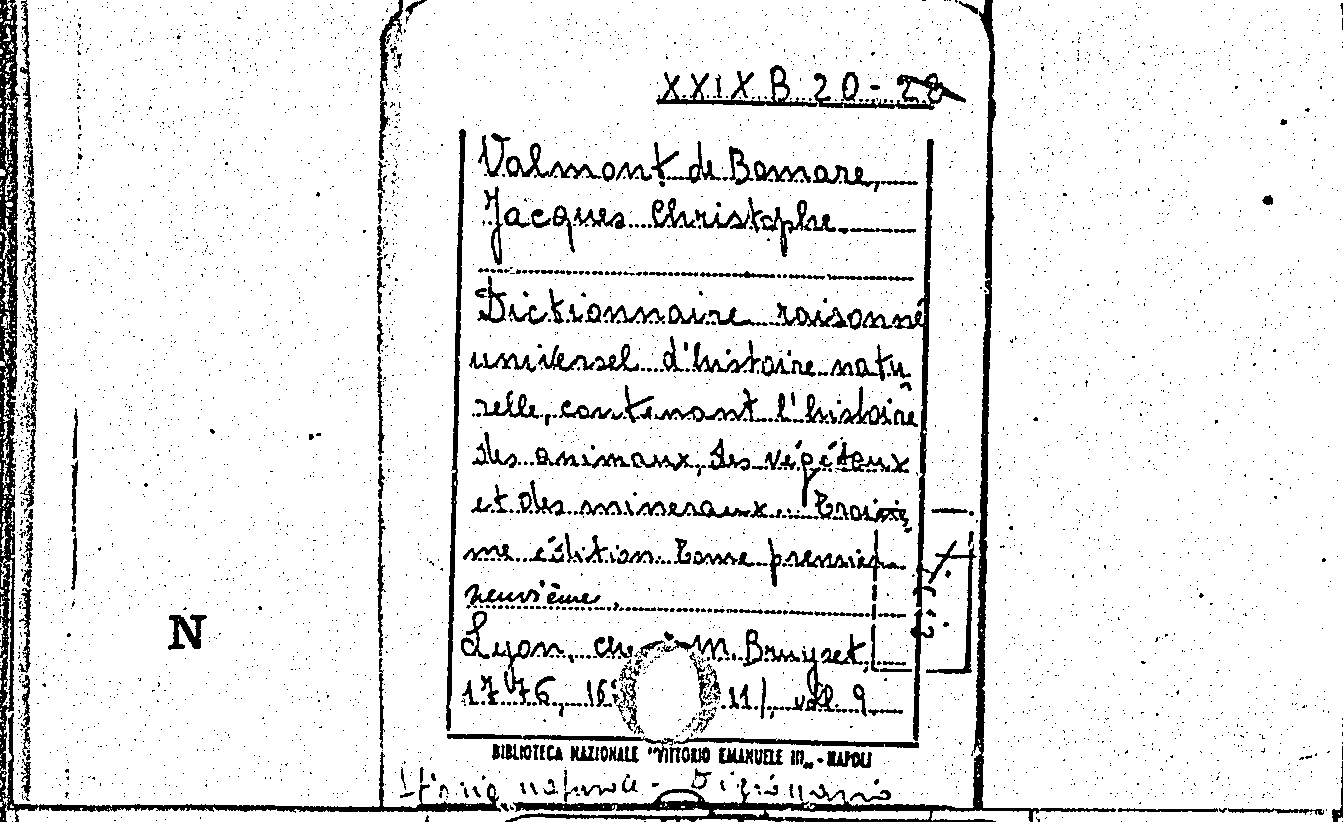 XXIX B 20-28
Valmont de Bomare,
Jacques Christophe.
Dictionnaire raisonné
universel d'histoire natu
relle, contenant l'histoire
des animaux, des végétaux
et des mineraux... Troisiè
me édition Tome premier
neuvième.
Lyon, M. Bruyset,
1776, 11/, voll. 9.
BIBLIOTECA NAZIONALE "VITTORIO EMANUELE III„ - NAPOLI
Storia naturale - Dizionario
N